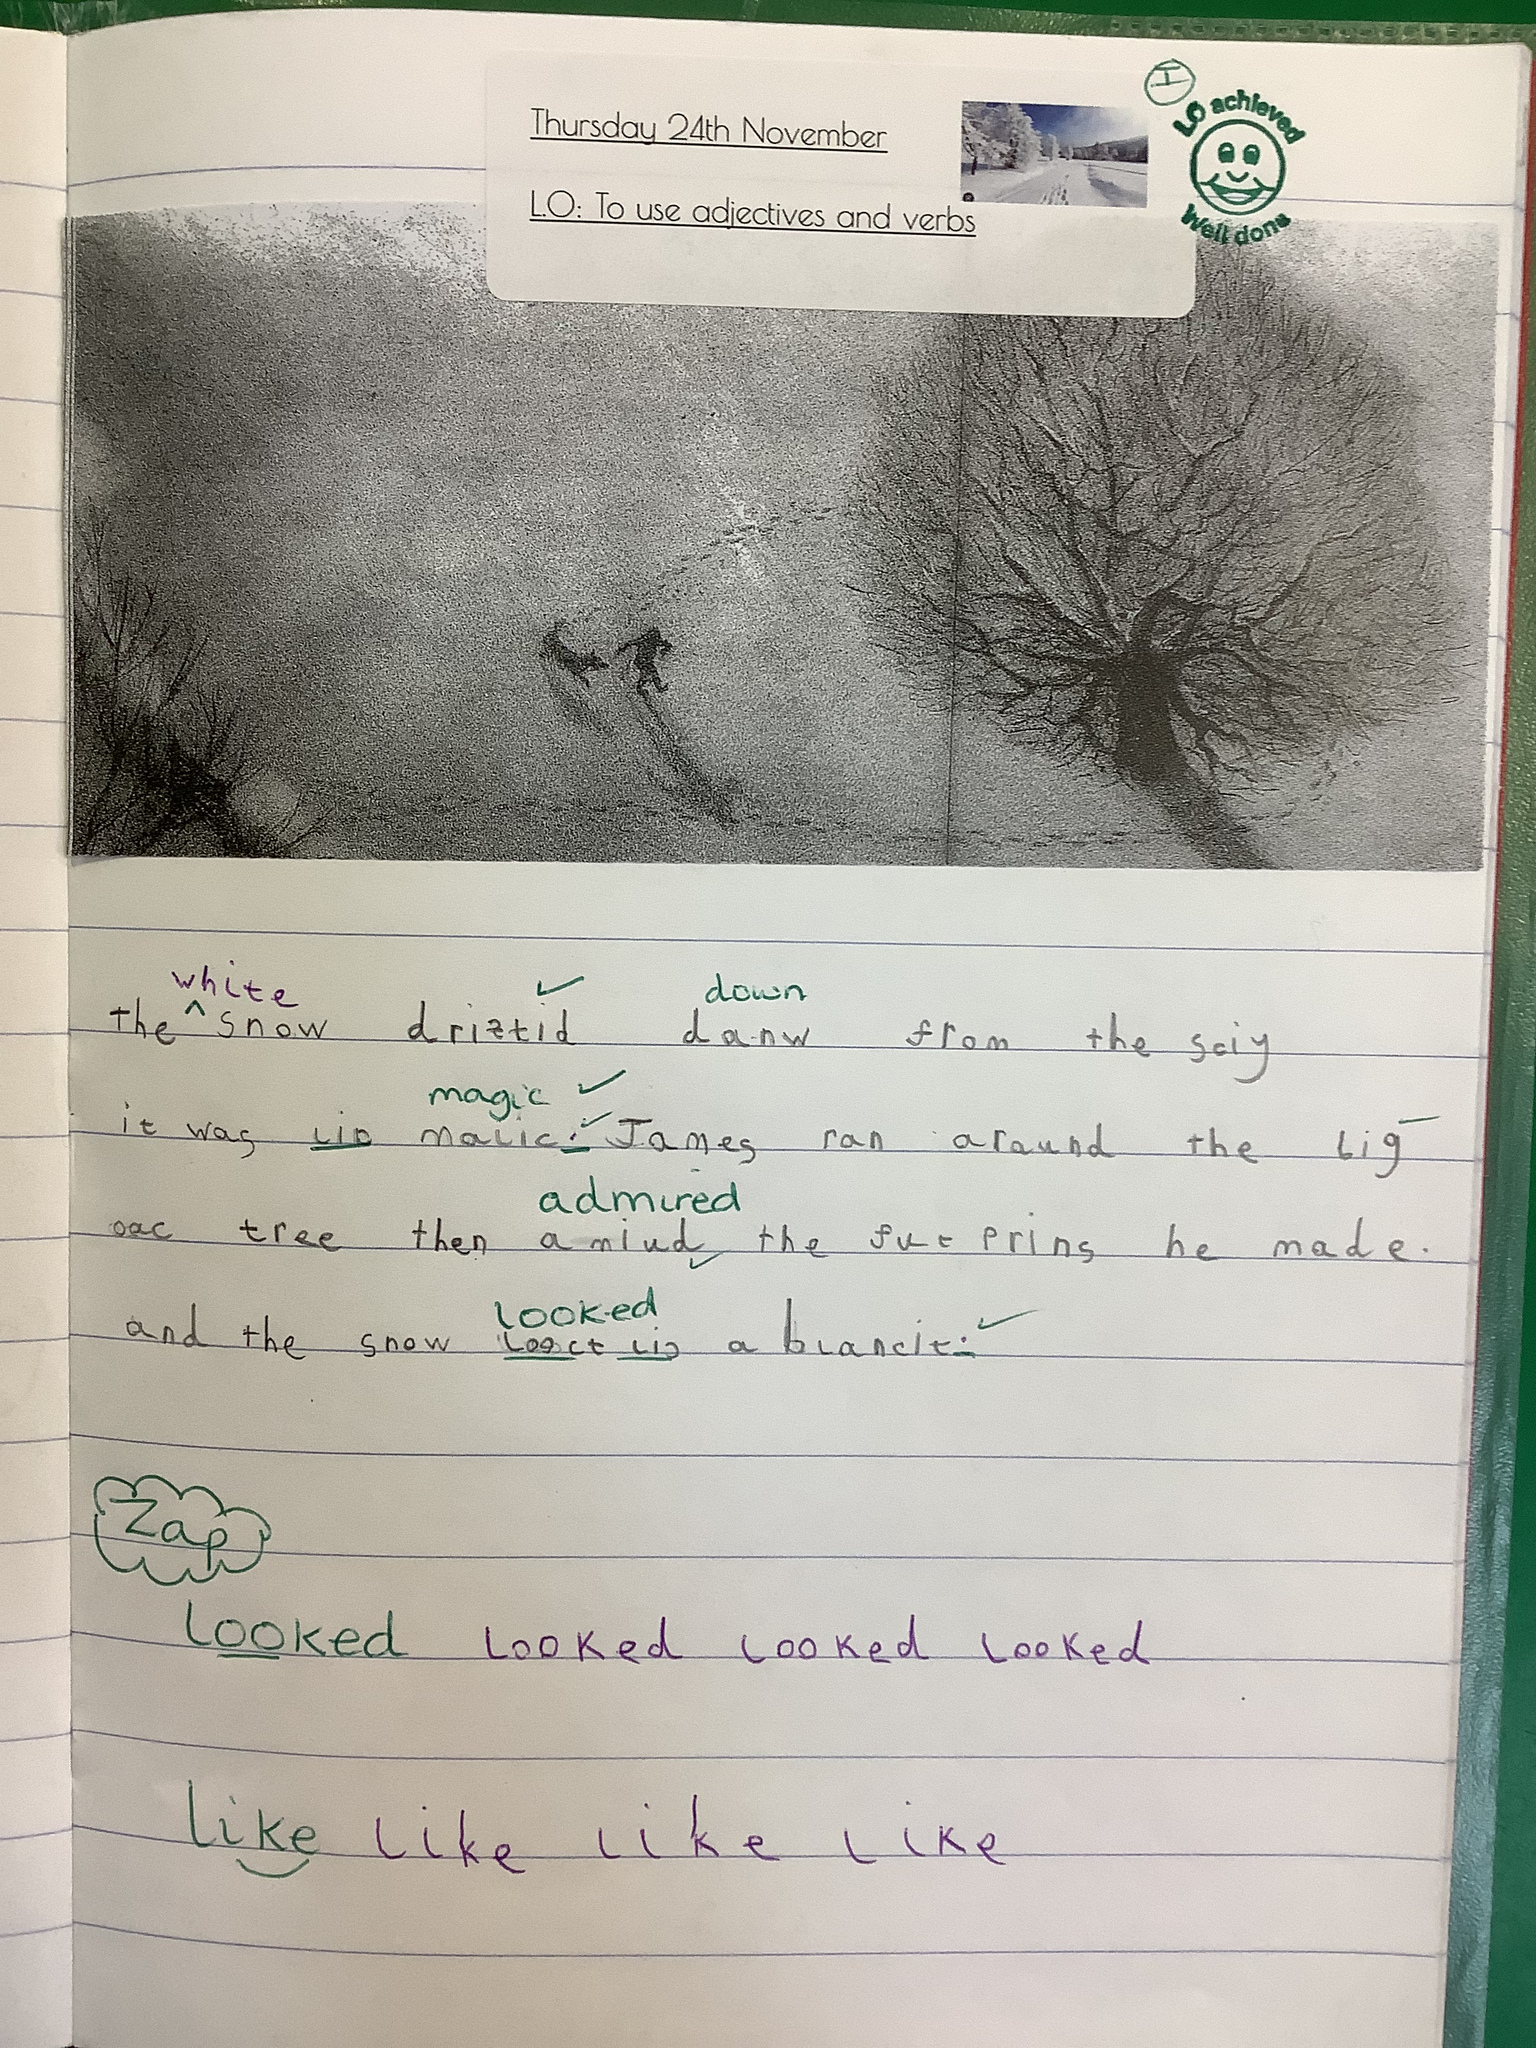 Thursday 24th November
I
LO achieved
Well done
LO: To use adjectives and verbs
white
down
the ^ snow driztid danw from the sciy
magic
it was lic malic. James ran araund the big
admired
oac tree then amiud the fut Prins he made.
looked
and the snow looct lic a blancit.
Zap
Looked Looked Looked Looked
like like like like